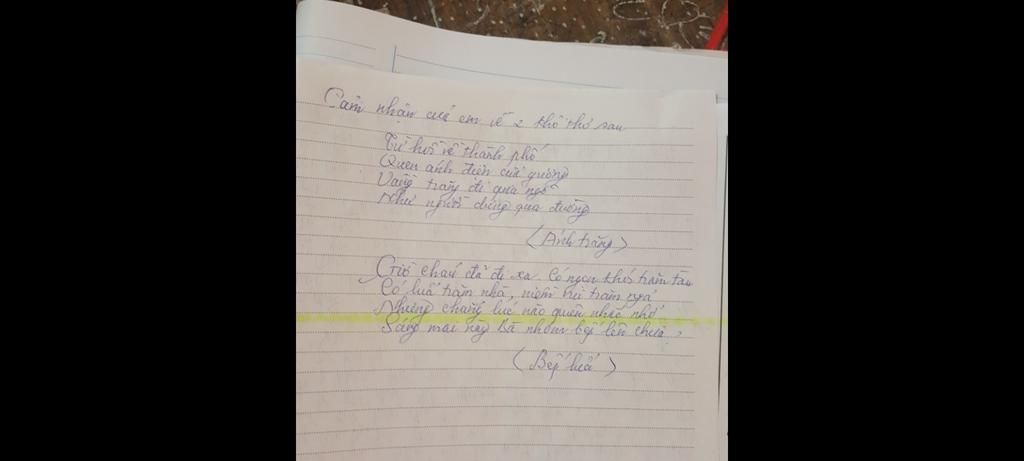 Cảm nhận của em về 2 khổ thơ sau
Từ hồi về thành phố
Quen ánh điện cửa gương
Vầng trăng đi qua ngõ
Như người dưng qua đường
(Ánh trăng)
Giờ cháu đã đi xa. Có ngọn khói trăm tàu
Có lửa trăm nhà, niềm vui trăm ngả
Nhưng chẳng lúc nào quên nhắc nhở
Sáng mai này bà nhóm bếp lên chưa?
(Bếp lửa)